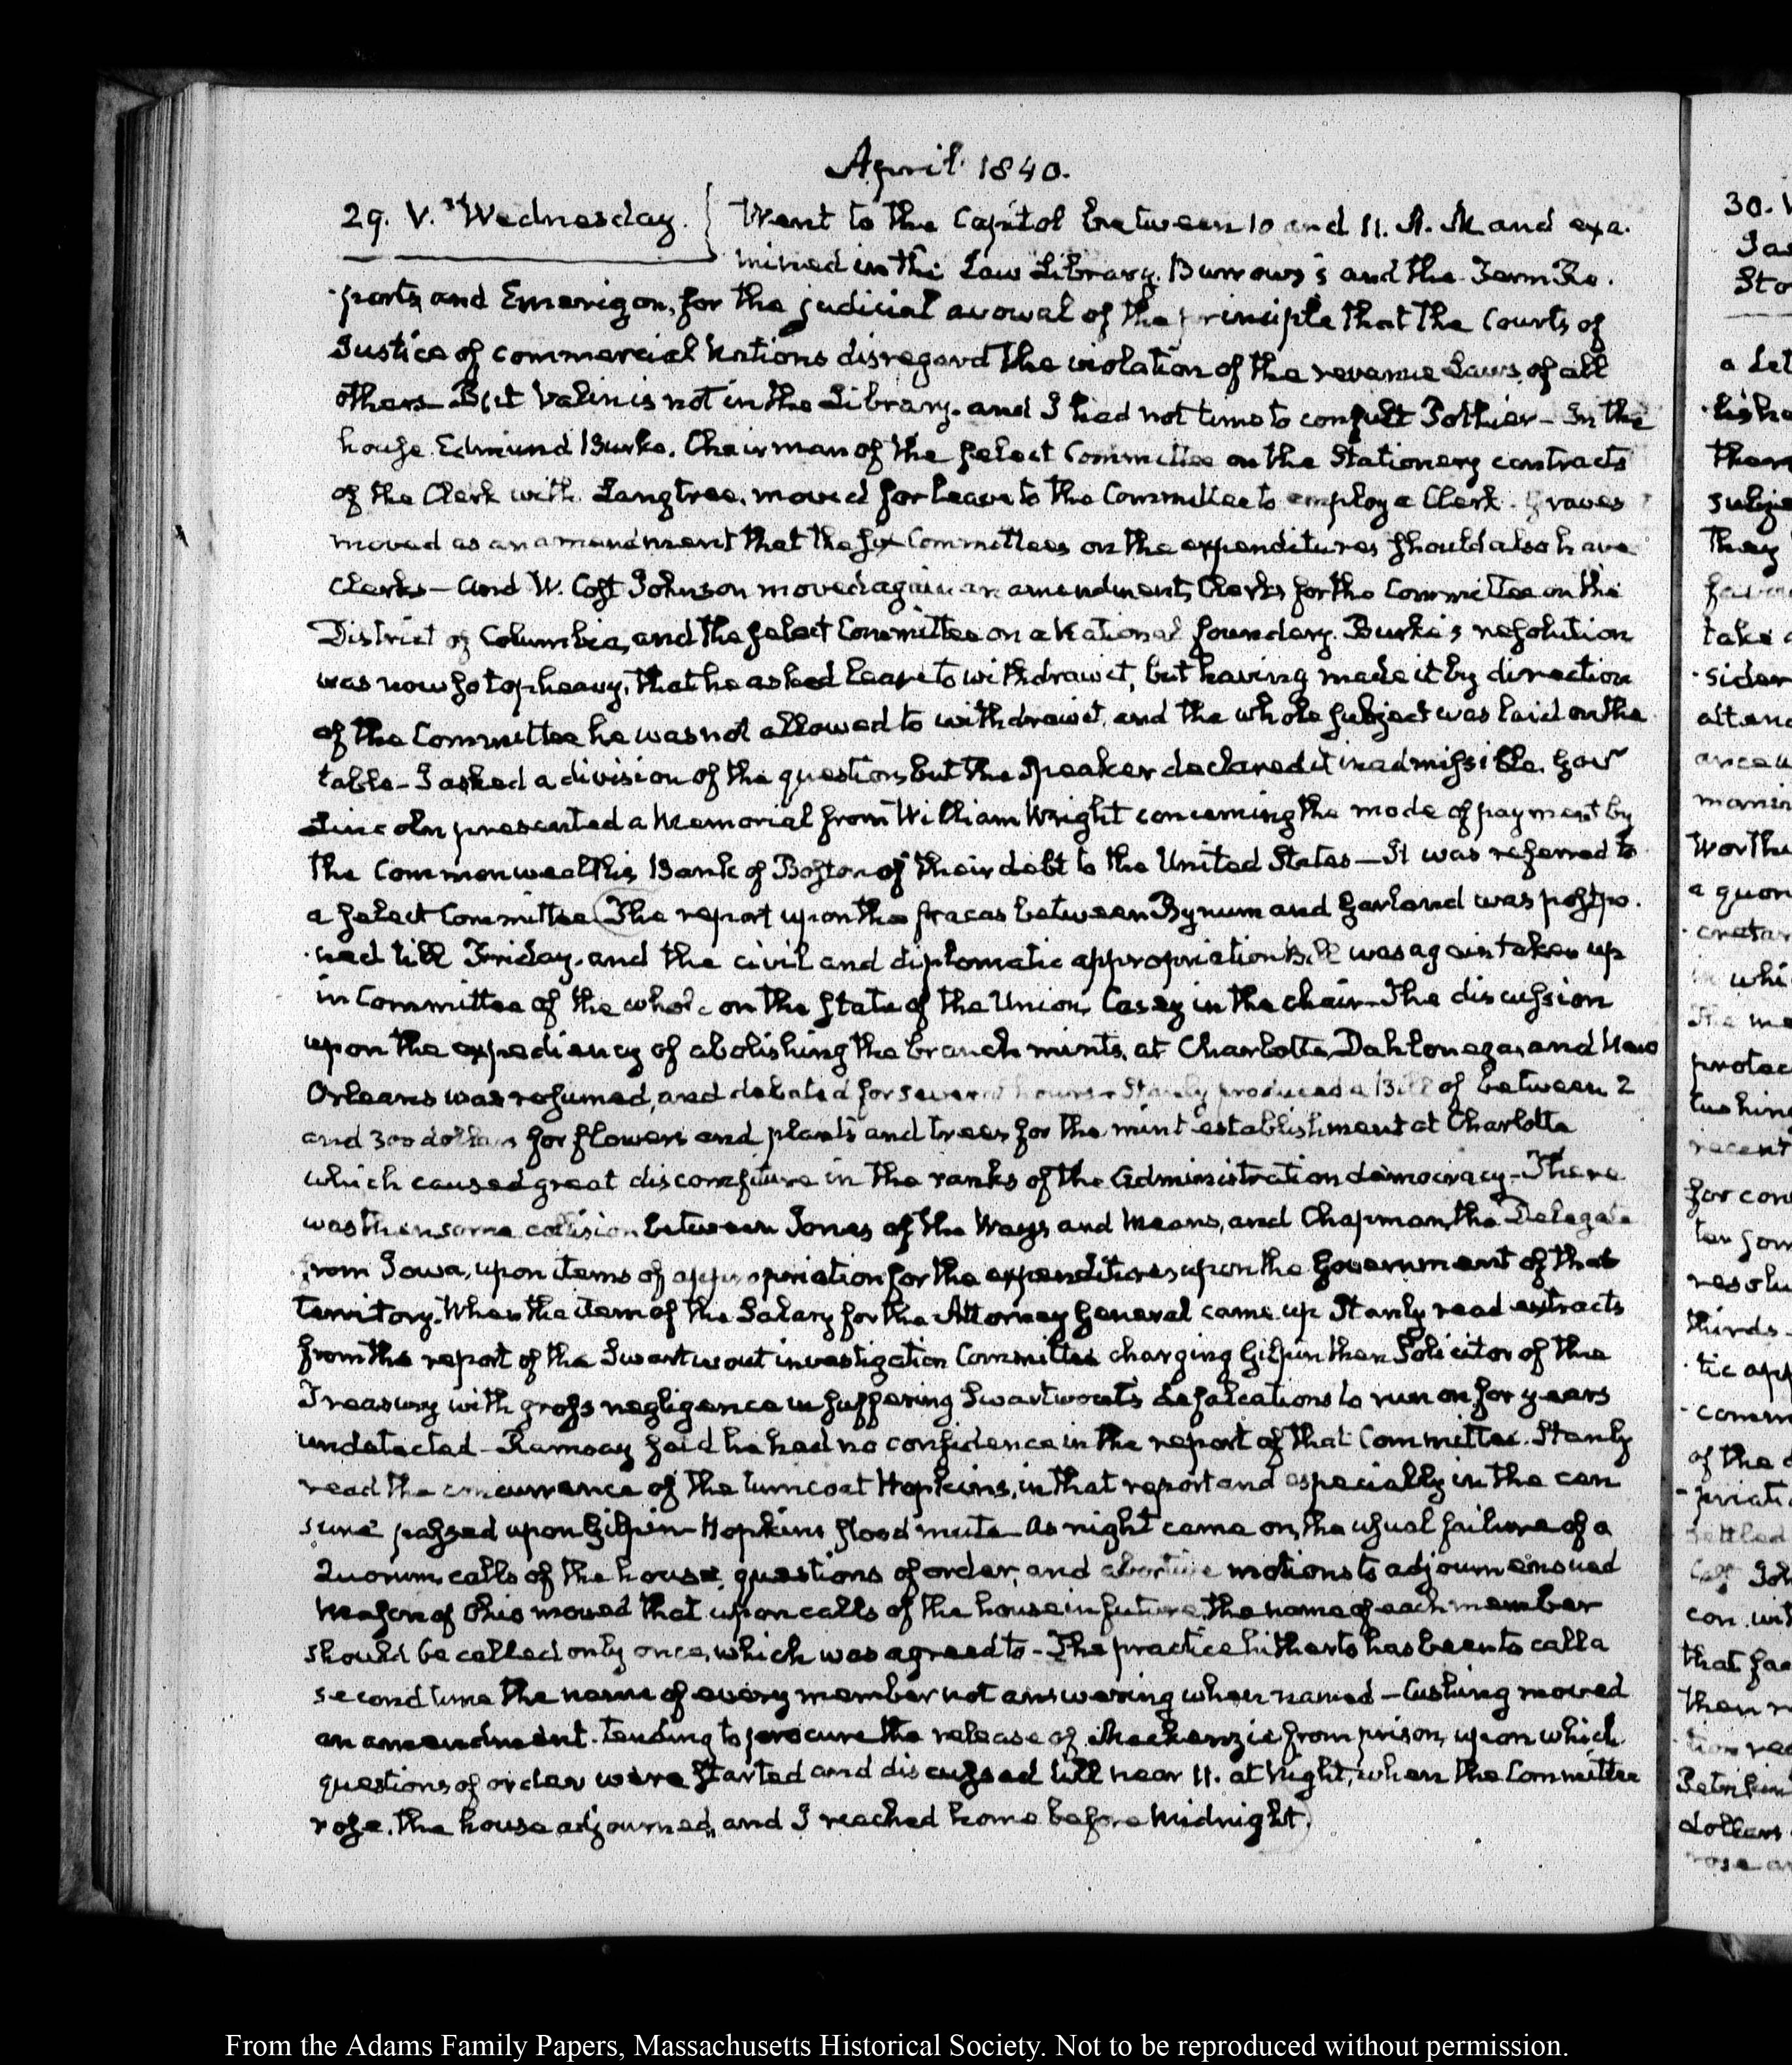 April 1840.
29. V. Wednesday. Went to the Capitol between 10 and 11. A. M and exa-
mined in the Law Library, Burrows's and the Term Re-
ports, and Emerigon, for the judicial avowal of the principle that the Courts of
Justice of commercial Nations disregard the violation of the revenue Laws, of all
others— But Valin is not in the Library, and I had not time to consult Pothier— In the
house Edmund Burke, Chairman of the select Committee on the Stationery contracts
of the Clerk with Langtree, moved for leave to the Committee to employ a Clerk. Graves
moved as an amendment that the six Committees on the expenditures should also have
Clerks— and W. Cost Johnson moved again an amendment, Clerks for the Committee on the
District of Columbia, and the select Committee on a National foundery. Burke's resolution
was now so topheavy, that he asked leave to withdraw it, but having made it by direction
of the Committee he was not allowed to withdraw it, and the whole subject was laid on the
table— I asked a division of the question, but the Speaker declared it inadmissible. Govr
Lincoln presented a Memorial from William Wright concerning the mode of payment by
the Commonwealth's Bank of Boston of their debt to the United States— It was referred to
a select Committee (The report upon the fracas between Bynum and Garland was postpo-
ned till Friday, and the civil and diplomatic appropriation Bill was again taken up
in Committee of the whole on the state of the Union, Casey in the chair— The discussion
upon the expediency of abolishing the branch mints, at Charlotte, Dahlonega, and New
Orleans was resumed, and debated for several hours— Stanly produced a Bill of between 2
and 300 dollars for flowers and plants and trees for the mint establishment at Charlotte
which caused great discomfiture in the ranks of the Administration democracy— There
was then some collision between Jones of the Ways and Means, and Chapman, the Delegate
from Iowa, upon items of appropriation for the expenditures upon the Government of that
Territory. When the item of the Salary for the Attorney General came up Stanly read extracts
from the report of the Swartwout investigation Committee charging Gilpin then Solicitor of the
Treasury with gross negligence in suffering Swartwout's defalcations to run on for years
undetected— Ramsay said he had no confidence in the report of that Committee. Stanly
read the concurrence of the turncoat Hopkins, in that report and especially in the cen
sure passed upon Gilpin— Hopkins stood mute— As night came on, the usual failure of a
Quorum, calls of the house, questions of order, and abortive motions to adjourn ensued
Mason of Ohio moved that upon calls of the house in future, the name of each member
should be called only once, which was agreed to— The practice hitherto has been to call a
second time the name of every member not answering when named— Cushing moved
an amendment tending to procure the release of Mackenzie from prison, upon which
questions of order were started and discussed till near 11. at Night, when the Committee
rose, the house adjourned, and I reached home before Midnight)
From the Adams Family Papers, Massachusetts Historical Society. Not to be reproduced without permission.